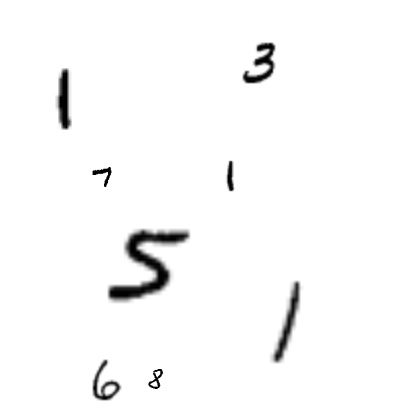 1 3
7 1
5
1
6 8